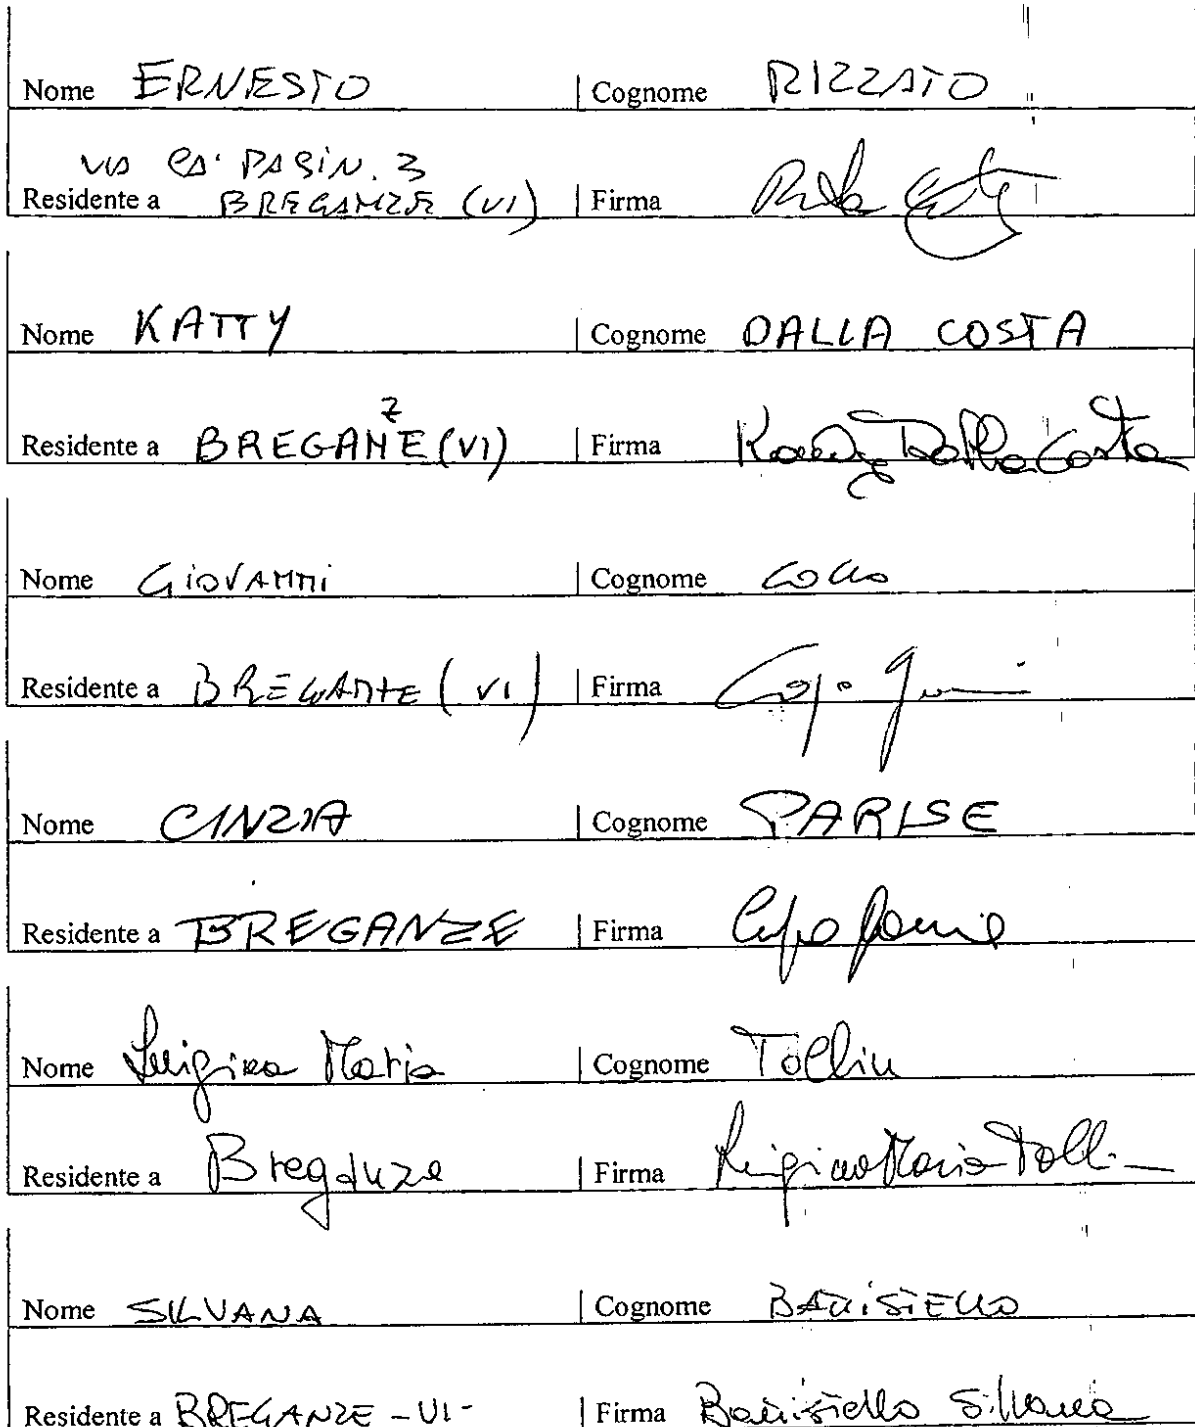 Nome ERNESTO | Cognome RIZZATO
VIA CA' PASIN. 3
Residente a BREGANZE (VI) | Firma
Nome KATTY | Cognome DALLA COSTA
Z
Residente a BREGANE (VI) | Firma Katty Dalla Costa
Nome GiOVANNi | Cognome
Residente a BREGANZE (VI) | Firma
Nome CINZIA | Cognome PARISE
Residente a BREGANZE | Firma
Nome Luigina Maria | Cognome Tollin
Residente a Breganze | Firma Luigina Maria Tollin
Nome SILVANA | Cognome
Residente a BREGANZE - VI - | Firma Silvana